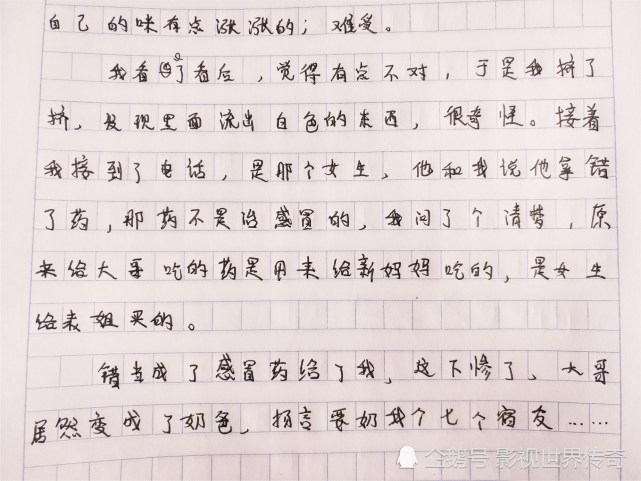 自己的咪有点涨涨的；难受。
我看了看后，觉得有点不对，于是我挤了
挤，发现里面流出白色的东西，很奇怪。接着
我接到了电话，是那个女生，他和我说他拿错
了药，那药不是治感冒的，我问了个清梦，原
来给大哥吃的药是用来给新妈妈吃的，是女生
给表姐买的。
错当成了感冒药给了我，这下惨了，大哥
居然变成了奶色，扬言要奶我个七个宿友……
企鹅号 影视世界传奇